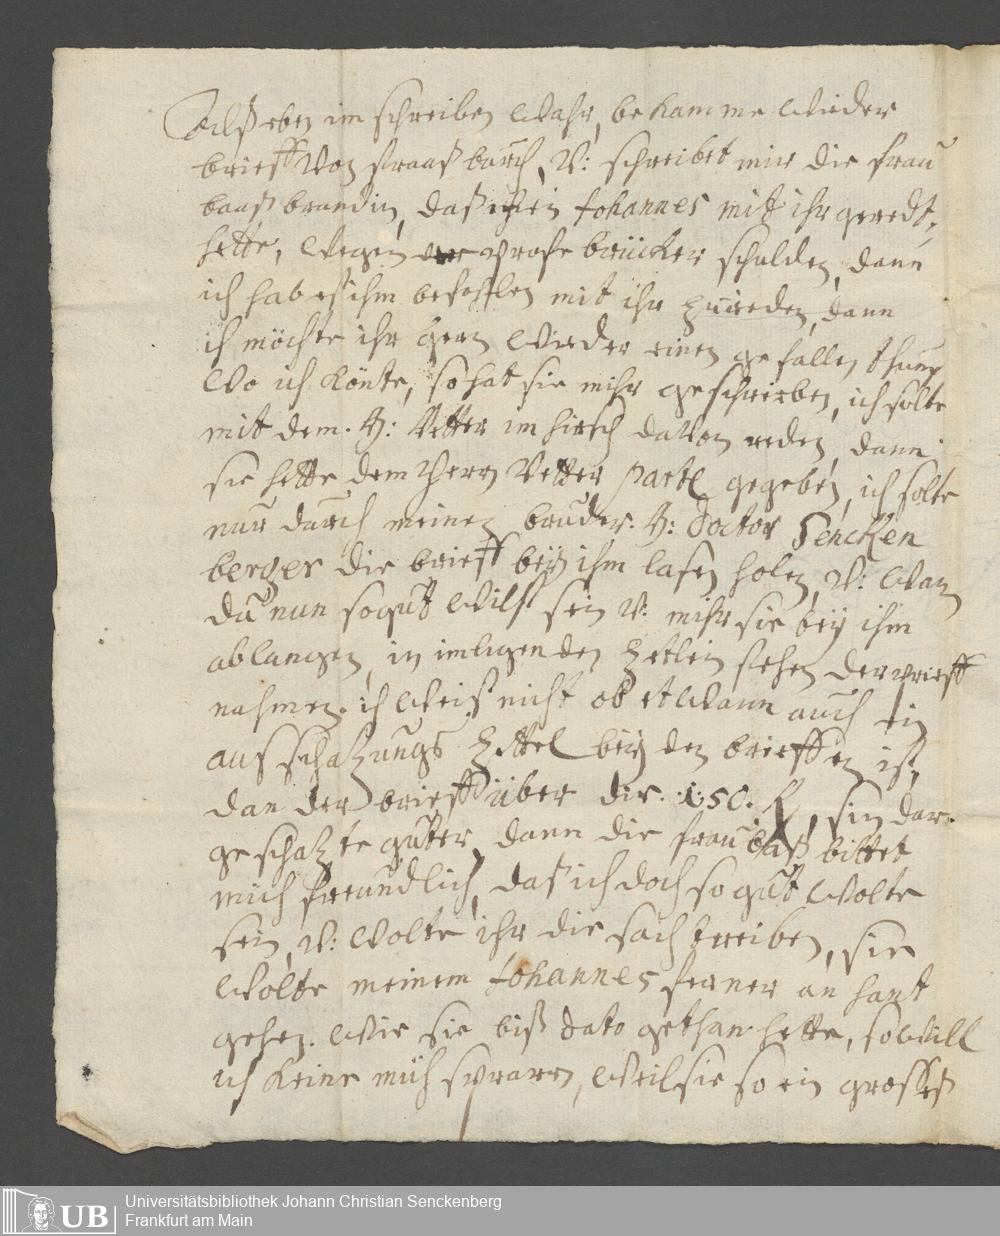 Alß eben im schreiben wahr, bekamme wieder
brieff von straasburch, V: schreibet mir die frau
baaß brandin, daß mein Johannes mit ihr geredt,
hette, wegen der brücker schulden, dann
ich hab es ihm befohlen mit ihr zu reden, dann
ich möchte ihr gern wieder einen gefallen thun,
wo ich könte, so hat sie mihr geschrieben, ich solte
mit dem. H: Vetter im hirsch davon reden, dann
sie hette dem Herrn Vetter part gegeben, ich solte
nur durch meinen bruder. H: Doctor Sencken
berger die brieff beÿ ihm lasen holen, V: wan
du nun so gut wilst sein V: mihr sie beÿ ihm
ablangen, in inligenden zettlen stehen der brieff
nahmen. ich weiß nicht ob etwann auch ein
ausschatzungs zettel beÿ den brieffen ist,
dan der brieff über die. 150. fl, sin dar.
geschatzte güter, dann die frau baß bittet
mich freundlich, daß ich doch so gut wolte
sein, V: wolte ihr die sach treiben, sie
wolte meinem Johannes ferner an hant
gehen. wie sie biß dato gethan hette, so will
ich keine müh sparen, weil sie so ein grosses
UB
Universitätsbibliothek Johann Christian Senckenberg
Frankfurt am Main